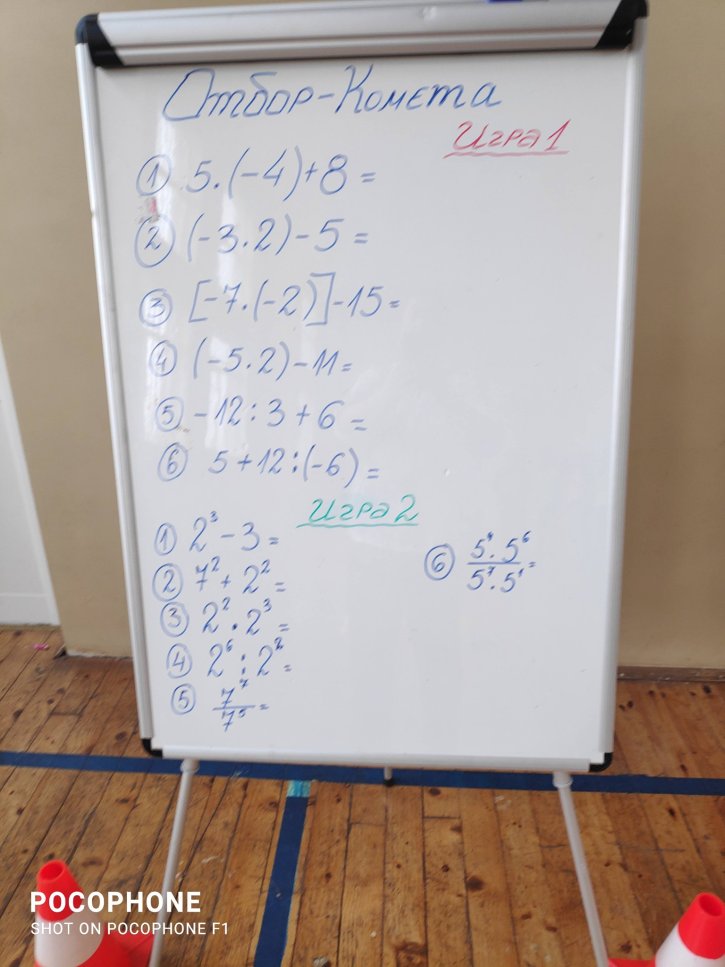 Отбор-Комета
Игра 1
① 5.(-4)+8=
② (-3.2)-5=
③ [-7.(-2)]-15=
④ (-5.2)-11=
⑤ -12:3+6=
⑥ 5+12:(-6)=
Игра 2
① 2³-3=
② 7²+2²=
③ 2².2³=
④ 2⁶:2²=
⑤ 7⁷/7⁵=
⑥ 5⁴.5⁶/5⁷.5¹=
POCOPHONE
SHOT ON POCOPHONE F1